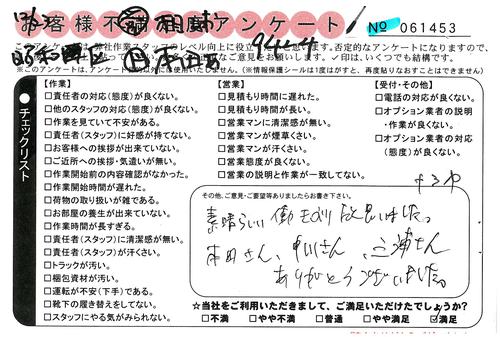 お客様不満足度アンケート
№ 061453
このアンケートは弊社作業スタッフのレベル向上に役立
否定的なアンケートになりますので、
ご意見をお願いします。✓印は、いくつでも結構です。
※このアンケートは、アンケート
以外には使用いたしません。(※情報保護シールは1度がすと、再度貼りなおすことはできません)
チェックリスト
【作業】
□責任者の対応(態度)が良くない。
□他のスタッフの対応(態度)が良くない。
□作業を見ていて不安がある。
□責任者(スタッフ)に好感が持てない。
□お客様への挨拶が出来ていない。
□ご近所への挨拶・気遣いが無い。
□作業開始前の内容確認がなかった。
□作業開始時間が遅れた。
□荷物の取り扱いが雑である。
□お部屋の養生が出来ていない。
□作業時間が長すぎる。
□責任者(スタッフ)に清潔感が無い。
□責任者(スタッフ)が汗くさい。
□トラックが汚い。
□梱包資材が汚い。
□運転が安全(下手)である。
□靴下の履き替えをしてない。
□スタッフにやる気がみられない。
【営業】
□見積もり時間に遅れた。
□見積もり時間が長い。
□営業マンに清潔感が無い。
□営業マンが煙草くさい。
□営業マンが汗くさい。
□営業態度が良くない。
□営業の説明と作業が一致してない。
【受付・その他】
□電話の対応が良くない。
□オプション業者の説明
・作業が良くない。
□オプション業者の対応
(態度)が良くない。
その他、ご意見・ご要望等ありましたらお書き下さい。
素晴らしい働き
本田さん、中川さん、三浦さん
ありがとうございました。
☆当社をご利用いただきまして、ご満足いただけたでしょうか?
□不満 □やや不満 □普通 □やや満足 ☑満足